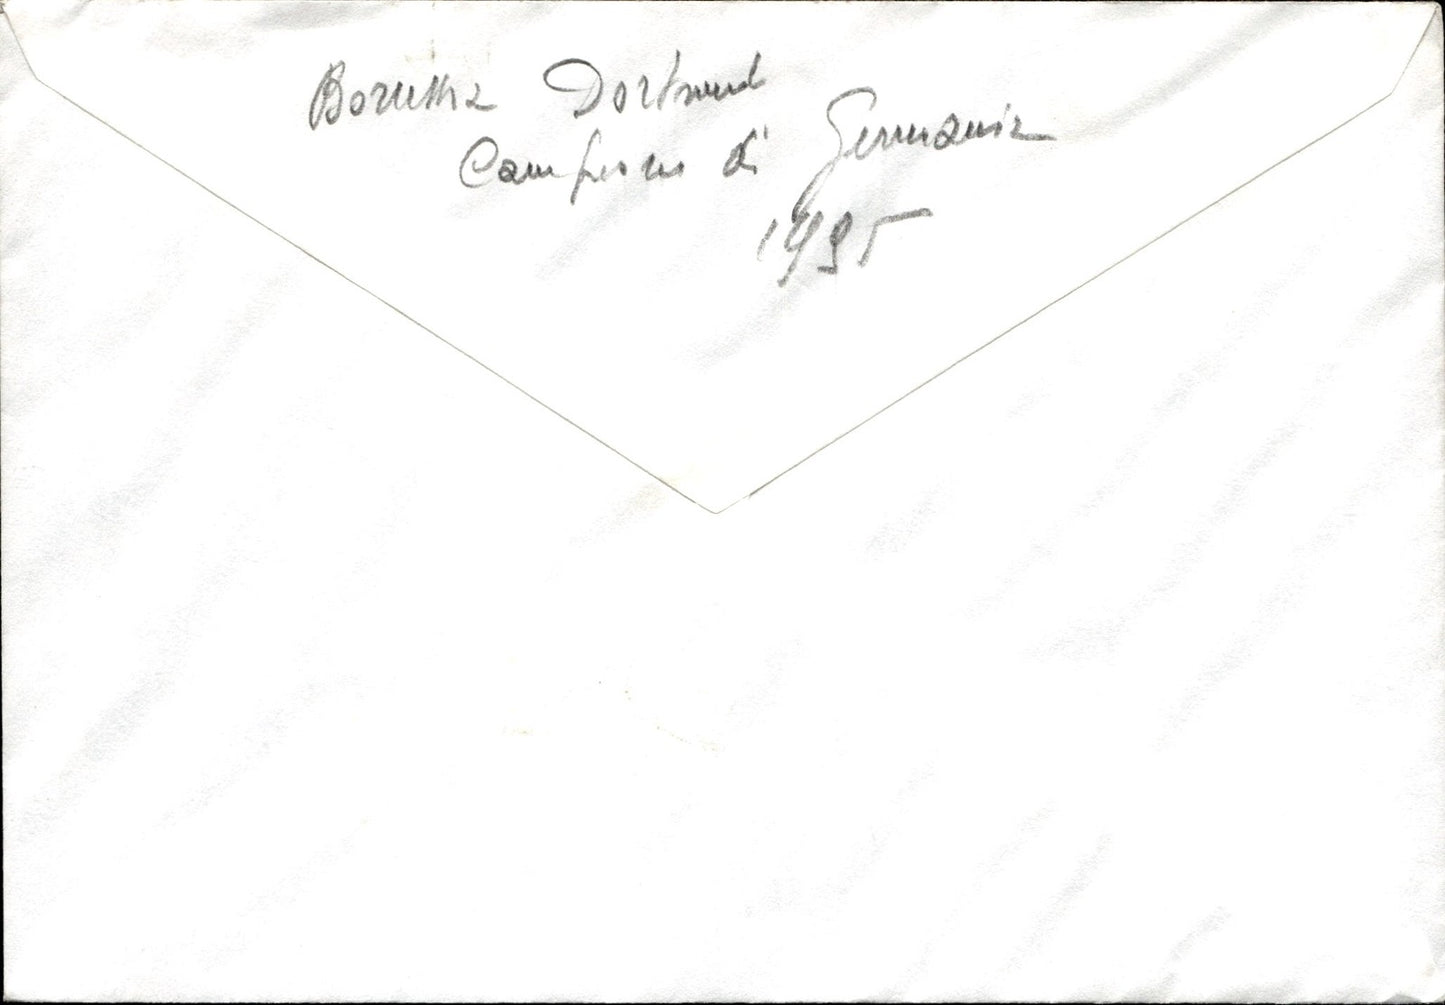 Borussia Dortmund
Campione di Germania
1995